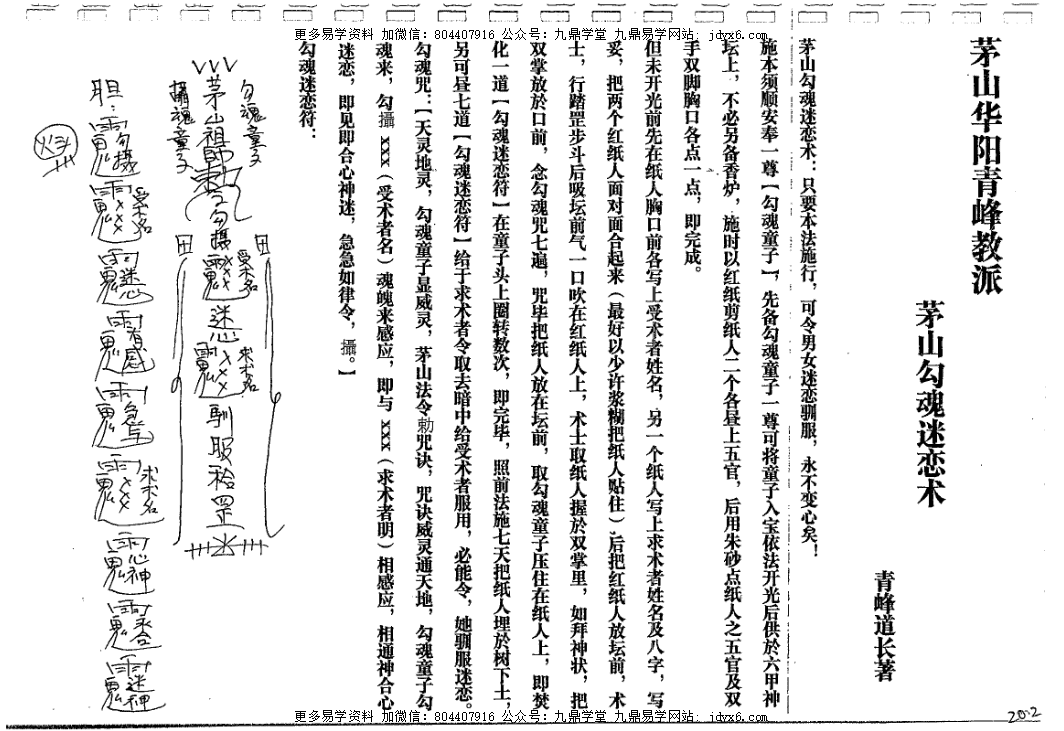 更多易学资料 加微信：804407916 公众号：九鼎学堂 九鼎易学网站：jdyx6.com
茅山华阳青峰教派
茅山勾魂迷恋术
青峰道长著
茅山勾魂迷恋术：只要本法施行，可令男女迷恋驯服，永不变心矣！
施本须顺安奉一尊【勾魂童子】，先备勾魂童子一尊可将童子入宝依法开光后供於六甲神
坛上，不必另备香炉，施时以红纸剪纸人二个各昼上五官，后用朱砂点纸人之五官及双
手双脚胸口各点一点，即完成。
但未开光前先在纸人胸口前各写上受术者姓名，另一个纸人写上求术者姓名及八字，写
妥，把两个红纸人面对面合起来（最好以少许浆糊把纸人贴住）后把红纸人放坛前，术
士，行踏罡步斗后吸坛前气一口吹在红纸人上，术士取纸人握於双掌里，如拜神状，把
双掌放於口前，念勾魂咒七遍，咒毕把纸人放在坛前，取勾魂童子压住在纸人上，即焚
化一道【勾魂迷恋符】在童子头上圈转数次，即完毕，照前法施七天把纸人埋於树下土，
另可昼七道【勾魂迷恋符】给于求术者令取去暗中给受术者服用，必能令，她驯服迷恋。
勾魂咒：【天灵地灵，勾魂童子显威灵，茅山法令勅咒诀，咒诀威灵通天地，勾魂童子勾
魂来，勾攝 xxx（受术者名）魂魄来感应，即与 xxx（求术者明）相感应，相通神合心
迷恋，即见即合心神迷，急急如律令，攝。】
勾魂迷恋符：
勾魂童子
茅山祖師勅令勾攝
攝魂童子
受术名
xxx
迷恋
求术名
xxx
馴服
罡
胆：
勾攝
受术名
xxx
迷恋
求术名
xxx
心神
迷神
更多易学资料 加微信：804407916 公众号：九鼎学堂 九鼎易学网站：jdyx6.com
20-2